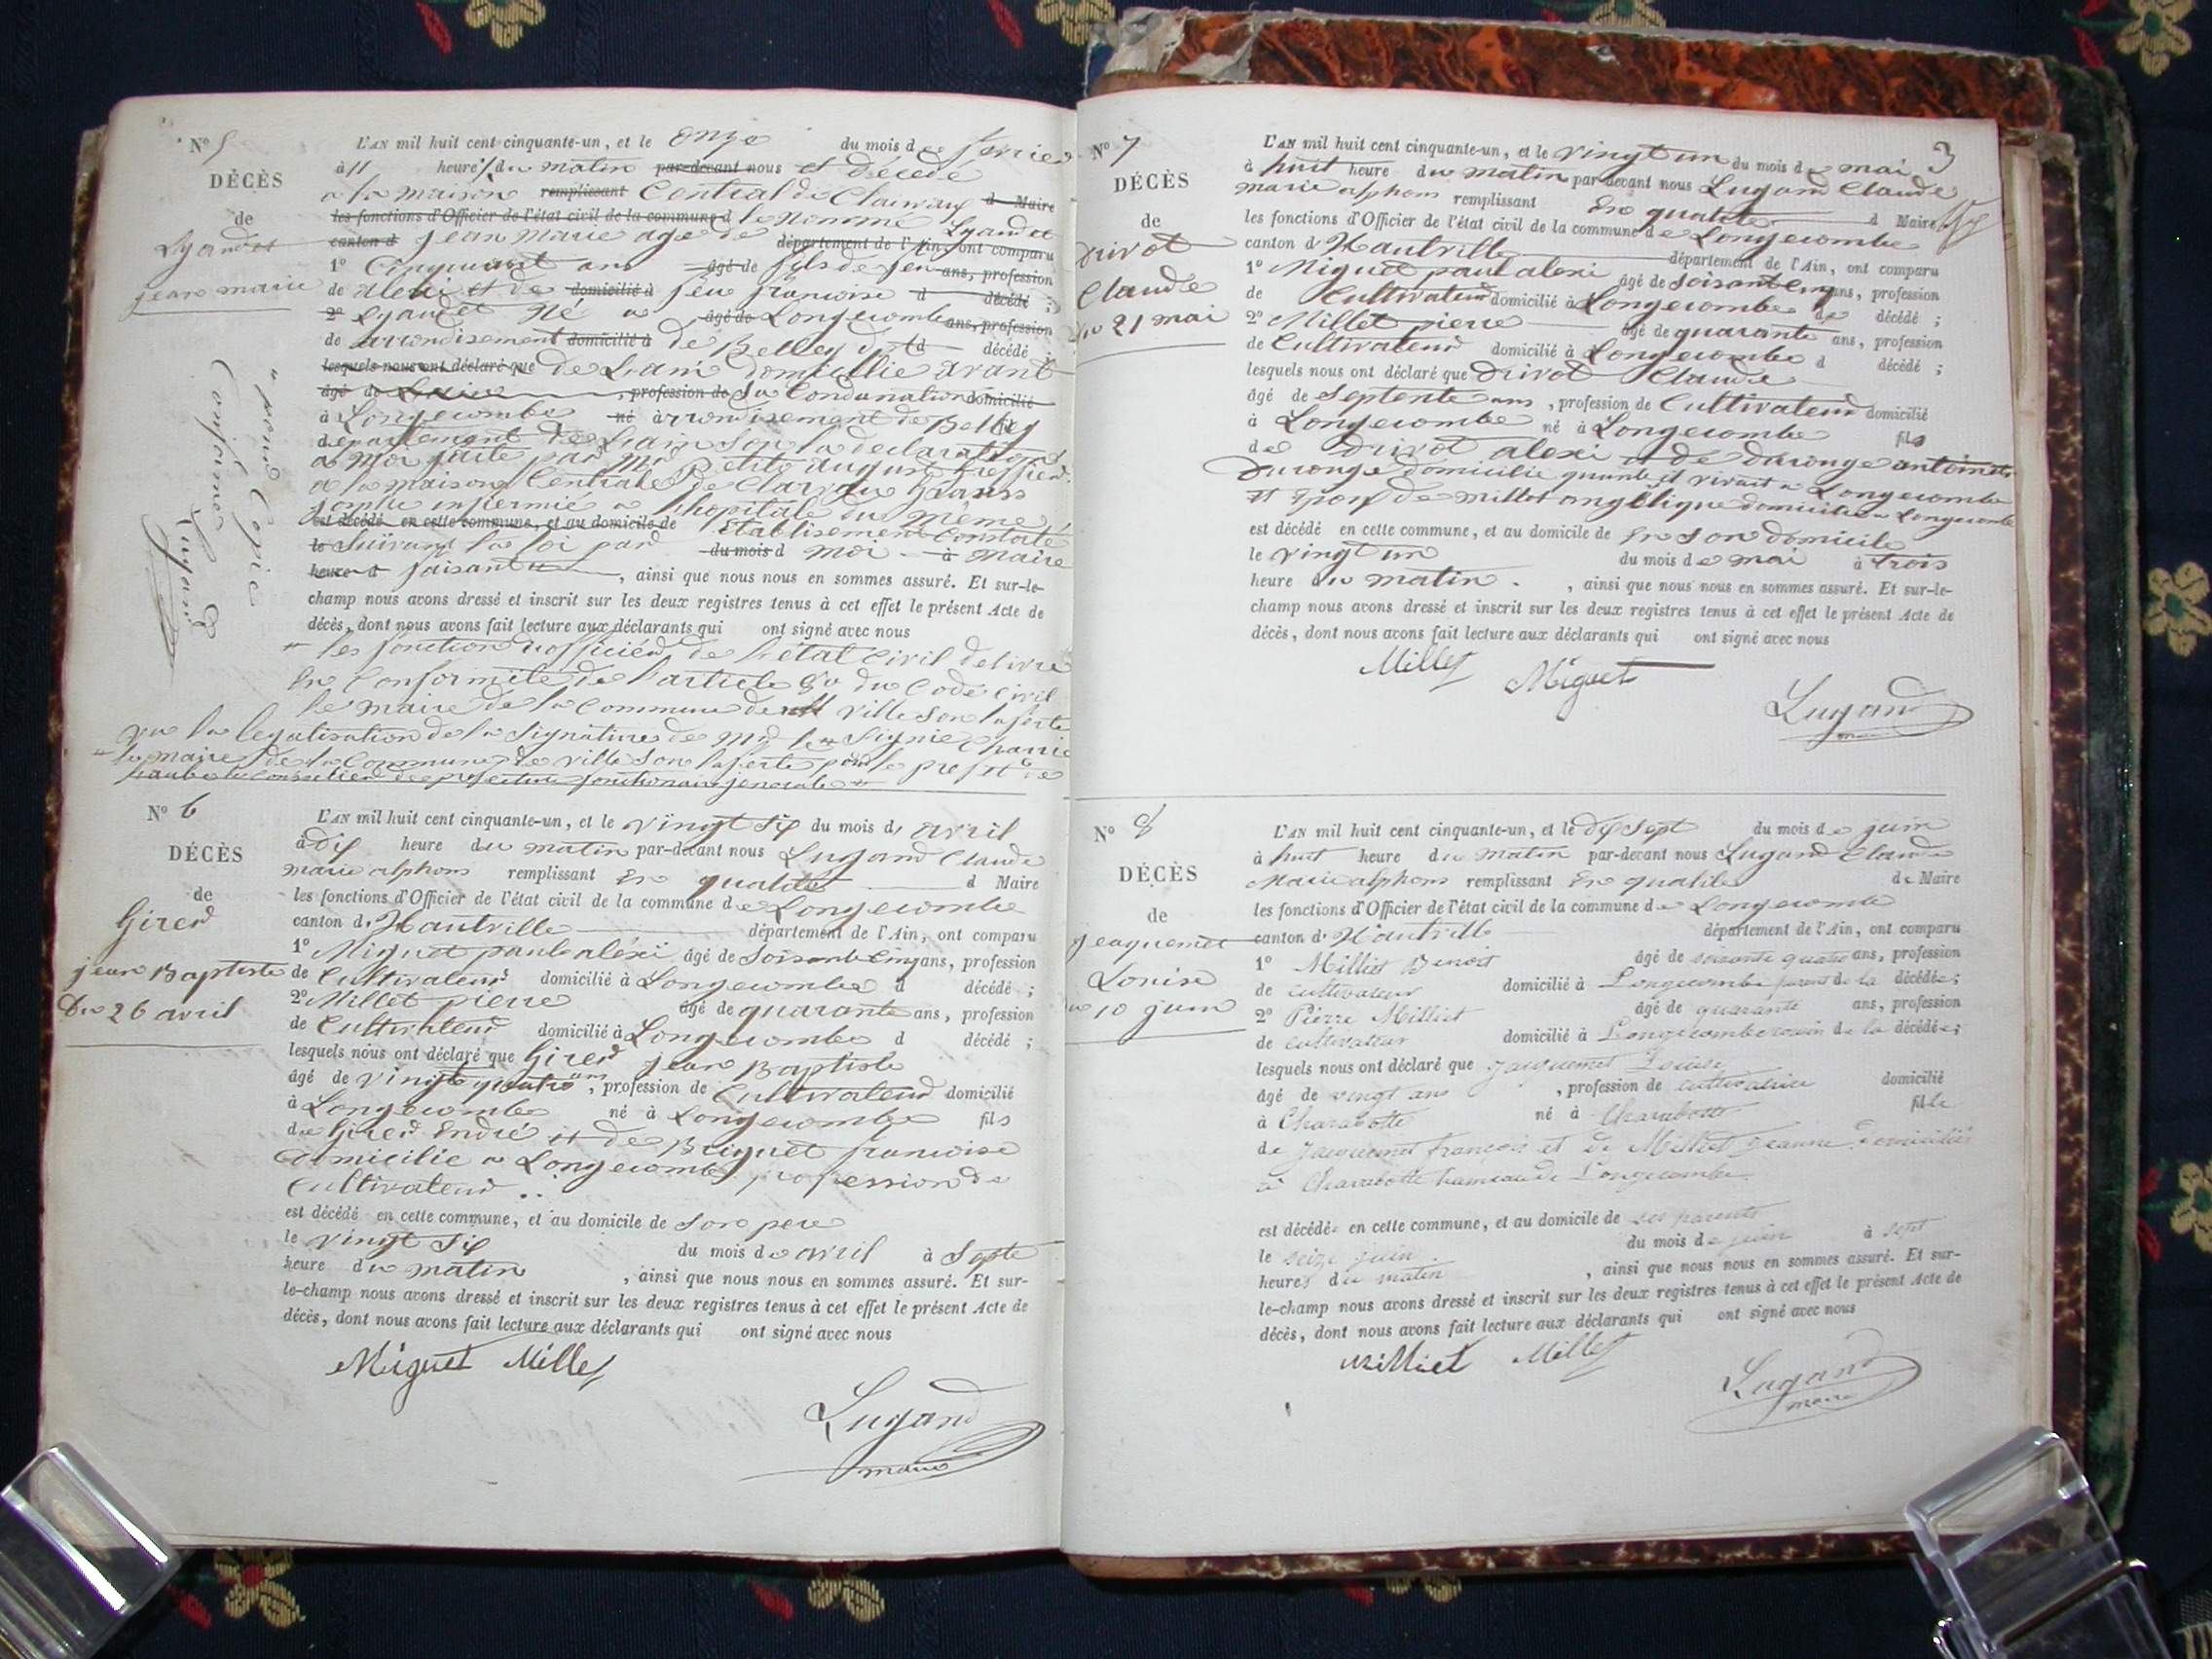 N° 5
DÉCÈS
de
Lyandet
jean marie
"pour Copie
Conforme
Lugand
L'AN mil huit cent cinquante-un, et le onze du mois de fevrier
à 11 heures du matin par-devant nous et décédé
a la maison remplissant Central de Clairvaux d Maire
les fonctions d'Officier de l'état civil de la commune d le nommé Lyandet
canton d jean marie age de département de l'Ain, ont comparu
1° Cinquant ans âgé de fils de feu ans, profession
de alexi et de domicilié à feu françoise d décédé ;
2° Lyandet né a âgé de Longecombe ans, profession
de arrondisement domicilié à de Belley d décédé ;
lesquels nous ont déclaré que de Lain domicillié avant
âgé de , profession de Sa Condanation domicilié
à Longecombe né à arrondisement de Belley
departement de Lain Son la declaration
a moi faite par Mr Petito august greffier
a la maison Centrale de Clarvau
joseph infermié a Lhopitale du meme
est décédé en cette commune, et au domicile de Etablisement Constaté
le Suivant la loi par du mois d moi à maire
heure d faisant , ainsi que nous nous en sommes assuré. Et sur-le-
champ nous avons dressé et inscrit sur les deux registres tenus à cet effet le présent Acte de
décès, dont nous avons fait lecture aux déclarants qui ont signé avec nous
les fonction d'officier de l'état Civil delivre
En Conformité de l'article 80 du Code Civil
le maire de la Commune de Ville Sou laferté
vu la legalisation de la Signature de
le maire de la Commune de ville Sou laferté pour le prefet de
laube le Conseiller de prefecture
N° 6
DÉCÈS
de
Girer
jean Baptiste
Du 26 avril
L'AN mil huit cent cinquante-un, et le vingt Six du mois d avril
à dix heure du matin par-devant nous Lugand Claude
marie alphons remplissant En qualité d Maire
les fonctions d'Officier de l'état civil de la commune de Longecombe
canton d. Hautville département de l'Ain, ont comparu
1° Miguet paul alexi âgé de Soisante Cinq ans, profession
de Cultivateur domicilié à Longecombe d décédé ;
2° Millet pierre âgé de quarante ans, profession
de Cultivateur domicilié à Longecombe d décédé ;
lesquels nous ont déclaré que Girer jean Baptiste
âgé de vingt quatre ans, profession de Cultivateur domicilié
à Longecombe né à Longecombe fils
de Girer Endré et de Briguet francoise
domicilie a Longecombe profession de
Cultivateur ..
est décédé en cette commune, et au domicile de Son pere
le vingt Six du mois de avril à Septe
heure du matin , ainsi que nous nous en sommes assuré. Et sur-
le-champ nous avons dressé et inscrit sur les deux registres tenus à cet effet le présent Acte de
décès, dont nous avons fait lecture aux déclarants qui ont signé avec nous
Miguet Millet
Lugand
maire
3
N° 7
DÉCÈS
de
Drivot
Claude
Du 21 mai
L'AN mil huit cent cinquante-un, et le vingt un du mois de mai
à huit heure du matin par-devant nous Lugand Claude
marie alphons remplissant En qualité d Maire
les fonctions d'Officier de l'état civil de la commune de Longecombe
canton d' Hautville département de l'Ain, ont comparu
1° Miguet paul alexi âgé de soisante Cinq ans, profession
de Cultivateur domicilié à Longecombe de décédé ;
2° Millet pierre âgé de quarante ans, profession
de Cultivateur domicilié à Longecombe d décédé ;
lesquels nous ont déclaré que Drivot Claude
âgé de Septente ans , profession de Cultivateur domicilié
à Longecombe né à Longecombe fils
de Drivot alexi et de Duronge antoinette
Duronge domicilie quante il vivait a Longecombe
et Epoux de millet angélique domicilie a Longecombe
est décédé en cette commune, et au domicile de En Son domicile
le vingt un du mois de mai à trois
heure du matin . , ainsi que nous nous en sommes assuré. Et sur-le-
champ nous avons dressé et inscrit sur les deux registres tenus à cet effet le présent Acte de
décès, dont nous avons fait lecture aux déclarants qui ont signé avec nous
Millet Miguet
Lugand
maire
N° 8
DÉCÈS
de
jeaquemet
Louise
du 10 juin
L'AN mil huit cent cinquante-un, et le dix Sept du mois de juin
à huit heure du matin par-devant nous Lugand Claude
Marie alphons remplissant En qualité de Maire
les fonctions d'Officier de l'état civil de la commune de Longecombe
canton d' Hautville département de l'Ain, ont comparu
1° Milliet Benoit âgé de soixante quatre ans, profession
de cultivateur domicilié à Longecombe parent de la décédée ;
2° Pierre Milliet âgé de quarante ans, profession
de cultivateur domicilié à Longecombe voisin de la décédée ;
lesquels nous ont déclaré que Jacquemet Louise
âgé de vingt ans , profession de cultivatrice domicilié
à Charabotte né à Charabotte fille
de Jacquemet françois et de Milliet Jeanne domiciliés
à Charabotte hameau de Longecombe
est décédée en cette commune, et au domicile de ses parents
le seize juin du mois de juin à sept
heures du matin , ainsi que nous nous en sommes assuré. Et sur-
le-champ nous avons dressé et inscrit sur les deux registres tenus à cet effet le présent Acte de
décès, dont nous avons fait lecture aux déclarants qui ont signé avec nous
Milliet Millet
Lugand
maire